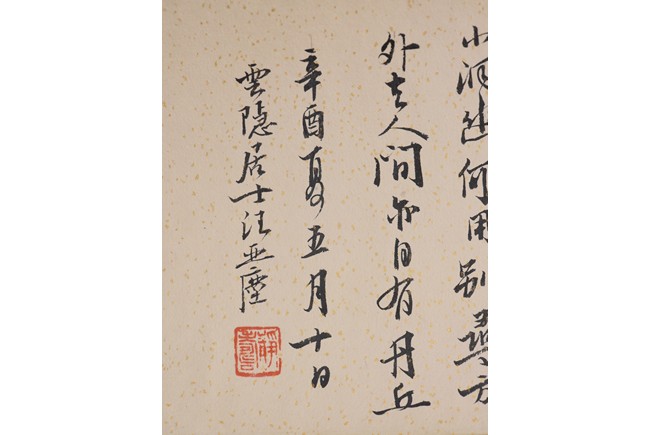 小洞幽何用别尋方
外去人間亦自有丹丘
辛酉夏五月十日
雲隱居士汪亞塵